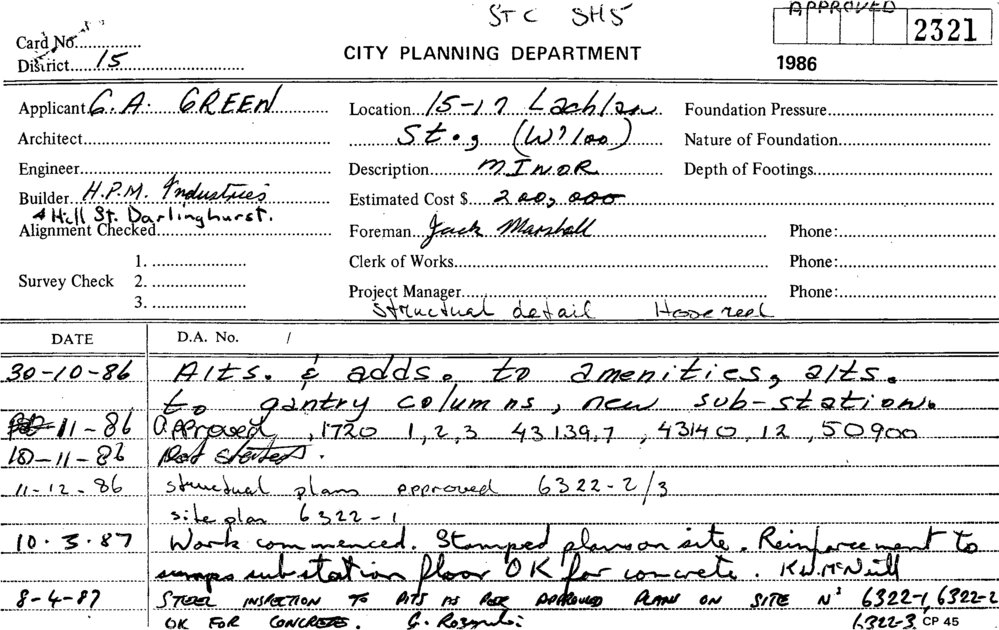 STC SH5
APPROVED
2321
Card No.
District 15
CITY PLANNING DEPARTMENT
1986
Applicant G.A. GREEN
Location 15-17 Lachlan
Foundation Pressure
Architect
St., (W'loo)
Nature of Foundation
Engineer
Description MINOR
Depth of Footings
Builder H.P.M. Industries
Estimated Cost $ 200,000
4 Hill St. Darlinghurst.
Alignment Checked
Foreman Jack Marshall
Phone:
Survey Check
1.
2.
3.
Clerk of Works
Phone:
Project Manager
Phone:
Structural detail Hosereel
DATE
D.A. No. /
30-10-86 Alts. & adds. to amenities, alts.
to gantry columns, new sub-station.
11-86 Approved, 1720 1,2,3 43139,7, 43140,12, 50900
10-11-86 Not started.
11-12-86 structural plans approved 6322-2/3
site plan 6322-1
10.3.87 Work commenced. Stamped plans on site. Reinforcement to
sumps substation floor OK for concrete. K.W. McNeill
8-4-87 STEEL INSPECTION TO PITS AS PER APPROVED PLANS ON SITE Nº 6322-1, 6322-2
OK FOR CONCRETE. G. 6322-3
CP 45